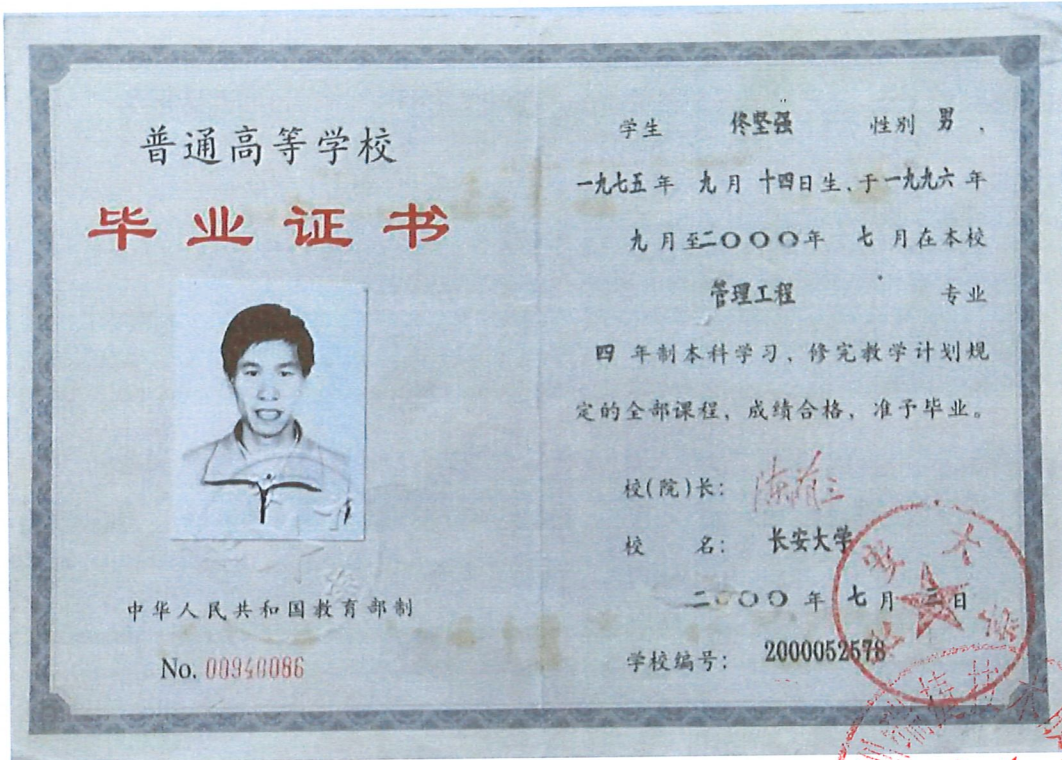 普通高等学校
毕业证书
中华人民共和国教育部制
No. 00940086
学生 佟坚强 性别 男，
一九七五年 九月 十四日生，于一九九六年
九月至二〇〇〇年 七月在本校
管理工程 专业
四 年制本科学习，修完教学计划规
定的全部课程，成绩合格，准予毕业。
校(院)长：
校 名： 长安大学
二〇〇〇年 七月 日
学校编号： 2000052578